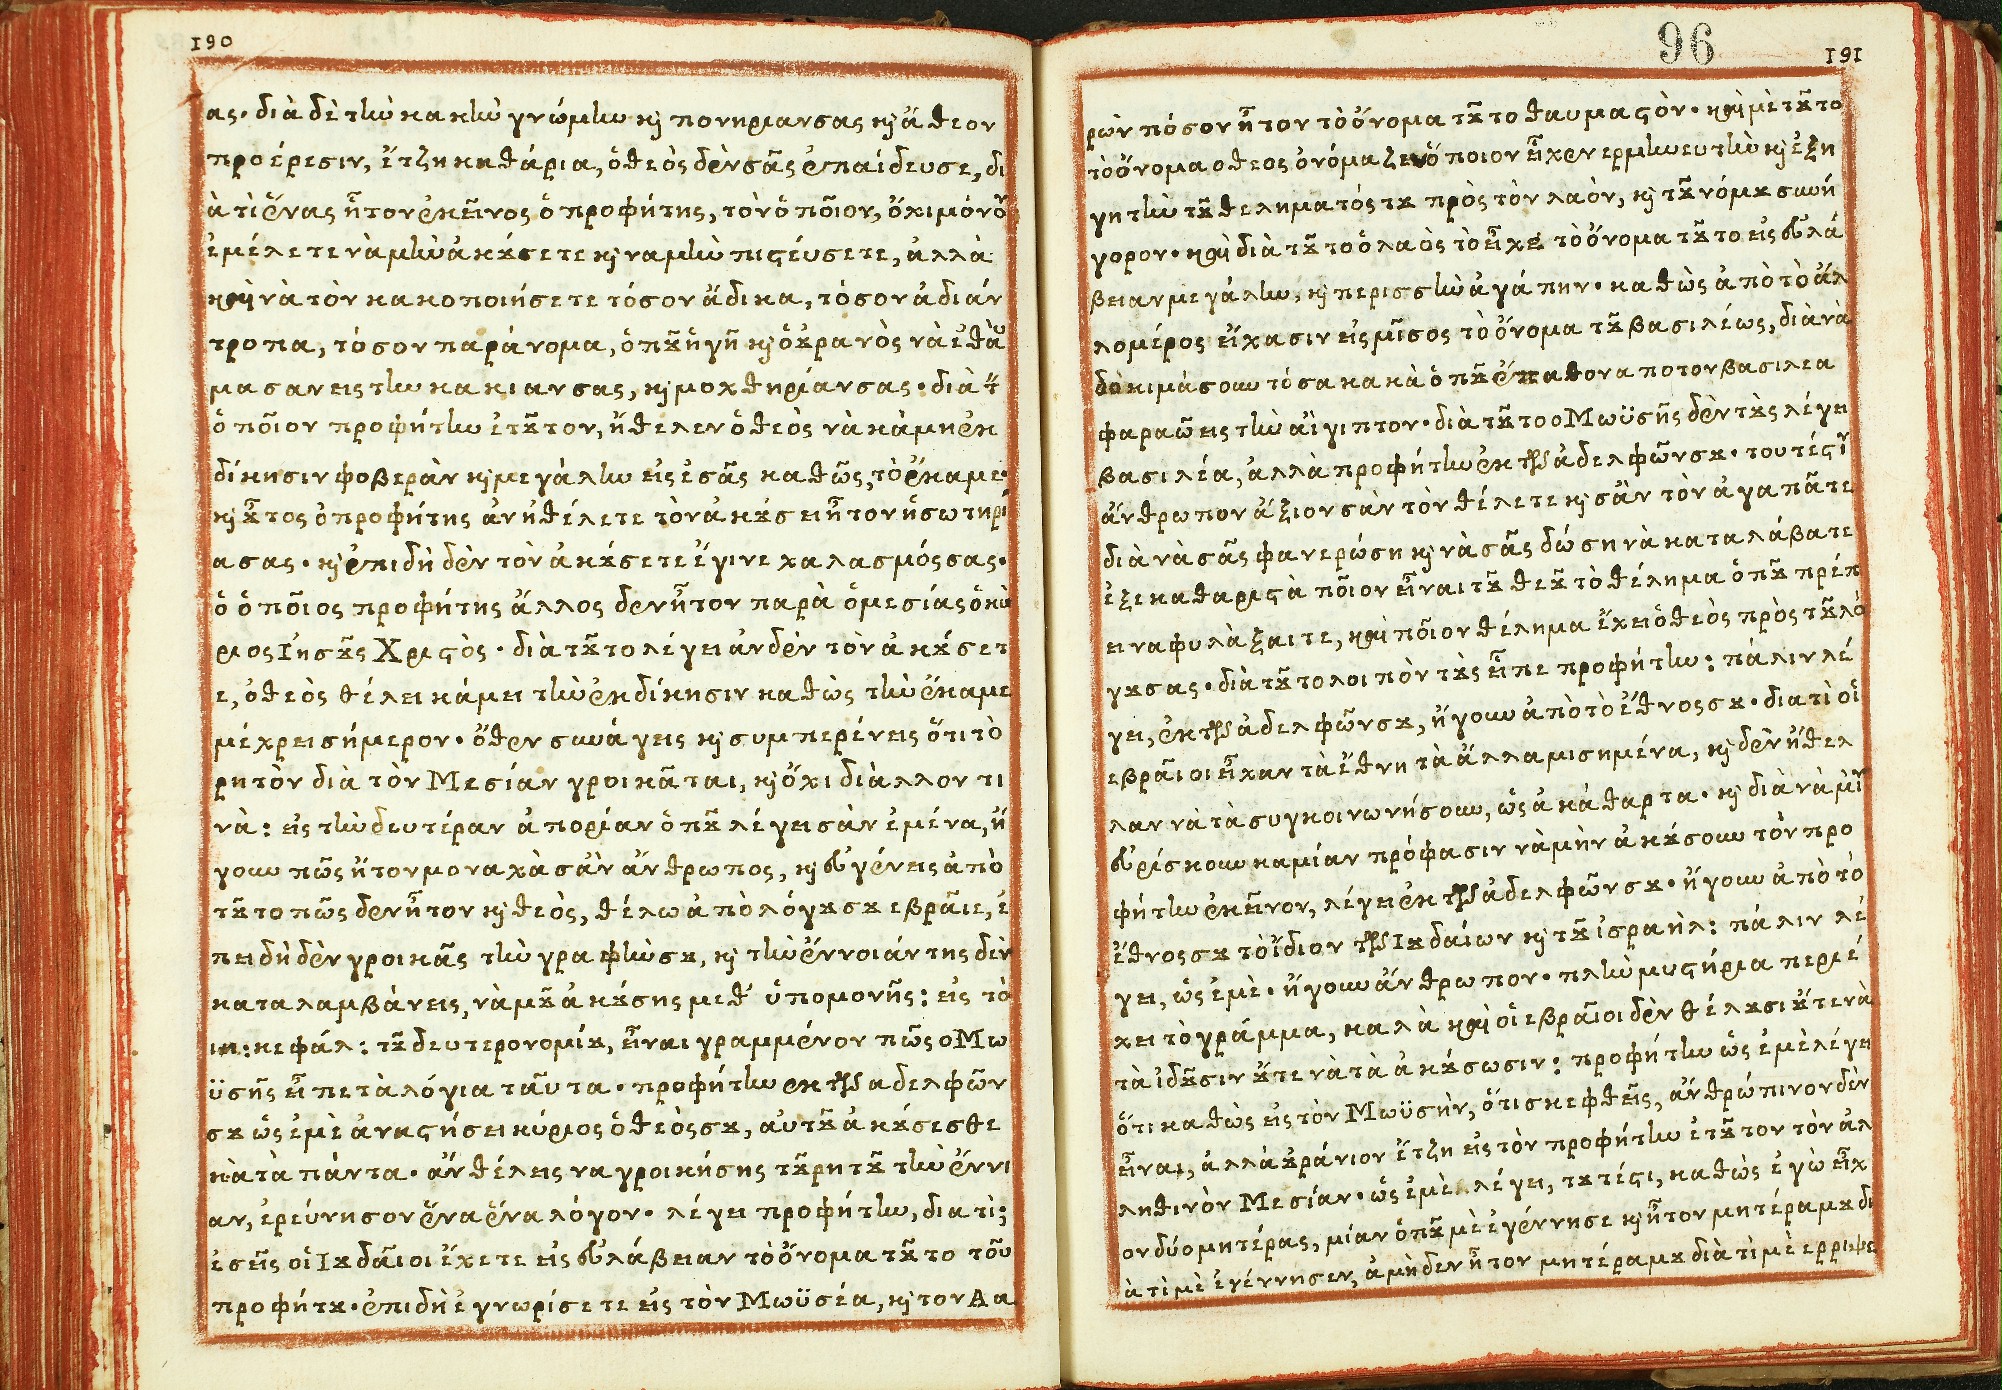 190
ας· διὰ δὲ τὴν κακὴν γνώμην κ̀ πονηριανσας κ̀ ἄθεον
προέρεσιν, ἔτζη καθάρια, ὁ θεὸς δὲν σᾶς ἐπαίδευσε, δι
ὰ τὶ ἕνας ἦτον ἐκεῖνος ὁ προφήτης, τὸν ὁποῖον, ὄχι μόνον
ἐμέλετε νὰ μὴν ἀκȣ́σετε κ̀ να μὴν πιςέυσετε, ἀλλὰ
καὶ νὰ τὸν κακοποιήσετε τόσον ἄδικα, τόσον ἀδιάν
τροπα, τόσον παράνομα, ὁπȣ̃ ἡ γῆ κ̀ ὁ ȣ̓ρανὸς νὰ ἐθαὺ
μασαν εις την κακιανσας, κ̀ μοχθηρίανσας· διὰ τ
ὁποῖον προφήτην ἐτȣ̃τον, ἤθελεν ὁ θεὸς νὰ κὰμη ἐκ
δίκησιν φοβερὰν κ̀ μεγὰλην εἰς ἐσᾶς καθῶς, τὸ ἔκαμε·
κ̀ ȣ̓͂τος ὁ προφήτης ἀν ἠθέλετε τὸν ἀκȣ́σει ἦτον ἡ σωτηρί
ασας· κ̀ ἐπιδὴ δὲν τὸν ἀκȣ́σετε ἔγινε χαλασμόςσας·
ὁ ὁποῖος προφήτης ἄλλος δεν ἦτον παρὰ ὁ μεσίας ὁ κὺ
ριος Ιησȣ̃ς Χριςὸς· διὰ τȣ̃το λέγει ἀν δὲν τὸν ἀκȣ́σετ
ε, ὁ θεὸς θέλει κάμει τὴν ἐκδίκησιν καθὼς τὴν ἔκαμε
μέχρει σήμερον· ὅθεν συνάγεις κ̀ συμπερένεις ὅτι τὸ
ρητὸν διὰ τὸν Μεσίαν γροικᾶται, κ̀ ὄχι διὰλλον τι
νὰ: εἰς τὴν δευτέραν ἀπορίαν ὁπȣ̃ λέγει σὰν ἐμένα, ἤ
γουν πῶς ἤτον μοναχὰ σἀν ἄνθρωπος, κ̀ εὐγένεις ἀπὸ
τȣ̃το πῶς δεν ἦτον κ̀ θεὸς, θέλω ἀπὸ λόγȣσȣ εβρᾶιε, ἐ
πειδὴ δὲν γροικᾶς τὴν γραφὴνσȣ, κ̀ τὴν ἔννοιάν της δὲν
καταλαμβάνεις, νὰ μȣ̃ ἀκȣ́σης μεθ' ὑπομονῆς: εἰς τὸ
ιη: κεφάλ: τȣ̃ δευτερονομίȣ, εἶναι γραμμένον πῶς ο Μω
ϋσῆς εἶπε τὰ λόγια ταῦτα· προφήτην εκ τῶν αδελφῶν
σȣ ὡς ἐμὲ ἀναςήσει κύριος ὁ θεὸςσȣ, αὐτȣ̃ ἀκȣ́σεσθε
κὰτὰ πάντα· ἄν θέλεις να γροικήσης τȣ̃ ρητȣ̃ τὴν ἔννοι
αν, ἐρεύνησον ἕνα ἕνα λόγον· λέγει προφήτην, διατὶ;
ἐσεῖς οἱ Ιȣδᾶιοι ἔχετε εἰς εὐλάβειαν τὸ ὄνομα τȣ̃το τοῦ
προφήτȣ· ἐπιδὴ ἐγνωρίσετε εἰς τὸν Μωϋσέα, κ̀ τον Αα
96
191
ρὼν πόσον ἦτον τὸ ὄνομα τȣ̃το θαυμαςὸν· καὶ μὲ τȣ̃το
τὸ ὄνομα ο θεος ὀνόμαζεν ὅποιον εἶχεν ερμηνευτὴν κ̀ ἐξη
γητὴν τȣ̃ θεληματόςτȣ πρὸς τὸν λαὸν, κ̀ τȣ̃ νόμȣ συνή
γορον· καὶ διὰ τȣ̃το ὁ λαὸς τὸ εἶχε τὸ ὄνομα τȣ̃το εἰς εὐλά
βειαν μεγάλην, κ̀ περισσὴν ἀγάπην· καθὼς ἀπὸ τὸ ἄλ
λο μέρος εἴχασιν εἰς μῖσος τὸ ὄνομα τȣ̃ βασιλέως, διὰ νὰ
δοκιμάσουν τόσα κακὰ ὁπȣ̃ ἔπαθον απο τον βασιλεα
φαραῶ εις τὴν αἴγιπτον· διὰ τȣ̃το ο Μωϋσῆς δὲν τȣ̀ς λέγει
βασιλέα, ἀλλὰ προφήτην ἐκ τῶν ἀδελφῶνσȣ· τουτέςιν
ἄνθρωπον ἄξιον σὰν τὸν θέλετε κ̀ σἂν τὸν ἀγαπᾶτε
διὰ νὰ σᾶς φανερώση κ̀ νὰ σᾶς δώση νὰ καταλάβατε
ἐξεκαθαριςὰ ποῖον εἶναι τȣ̃ θεȣ̃ τὸ θέλημα ὁπȣ̃ πρέπ
ει να φυλὰξαιτε, καὶ ποῖον θέλημα ἔχει ὁ θεὸς πρὸς τȣ̃ λό
γȣσας· διὰ τȣ̃το λοιπὸν τȣ̀ς εἶπε προφήτην: πάλιν λέ
γει, ἐκ τῶν ἀδελφῶνσȣ, ἤγουν ἀπὸ τὸ ἔθνοςσȣ· διατὶ οἱ
εβρᾶιοι εἶχαν τὰ ἔθνη τὰ ἄλλα μισημένα, κ̀ δὲν ἤθελ
λαν νὰ τὰ συγκοινωνήσουν, ὡς ἀκάθαρτα· κ̀ διὰ νὰ μὴν
εὐρίσκουν καμίαν πρόφασιν νὰ μὴν ἀκȣ́σουν τὸν προ
φήτην ἐκεῖνον, λέγει ἐκ τῶν ἀδελφῶνσȣ· ἤγουν ἀπὸ τὸ
ἔθνοςσȣ τὸ ἴδιον τῶν Ιȣδαίων κ̀ τȣ̃ ἰσραὴλ: πάλιν λέ
γει, ὡς ἐμὲ· ἤγουν ἄνθρωπον· πλὴν μυςήρια περιέ
χει τὸ γράμμα, καλὰ καὶ οἱ εβρᾶιοι δὲν θέλȣσι ȣ̓́τε νὰ
τὰ ἰδȣ̃σιν ȣ̓́τε νὰ τὰ ἀκȣ́σωσιν: προφήτην ὡς ἐμὲ λέγει
ὅτι καθὼς εἰς τὸν Μωϋσὴν, ὅτι σκεφθεῖς, ἀνθρώπινον δὲν
εἶναι, ἀλλὰ ȣ̓ράνιον ἔτζη εἰς τὸν προφήτην ἐτȣ̃τον τὸν ἀλ
ληθινὸν Μεσίαν· ὡς ἐμὲ λέγει, τȣτέςι, καθὼς ἐγὼ εἶχ
ον δύο μητέρας, μίαν ὁπȣ̃ μὲ ἐγέννησε κ̀ ἦτον μητέραμȣ δι
ὰ τὶ μὲ ἐγέννησεν, ἀμὴ δεν ἦτον μητέραμȣ διὰ τὶ μὲ ερριψε